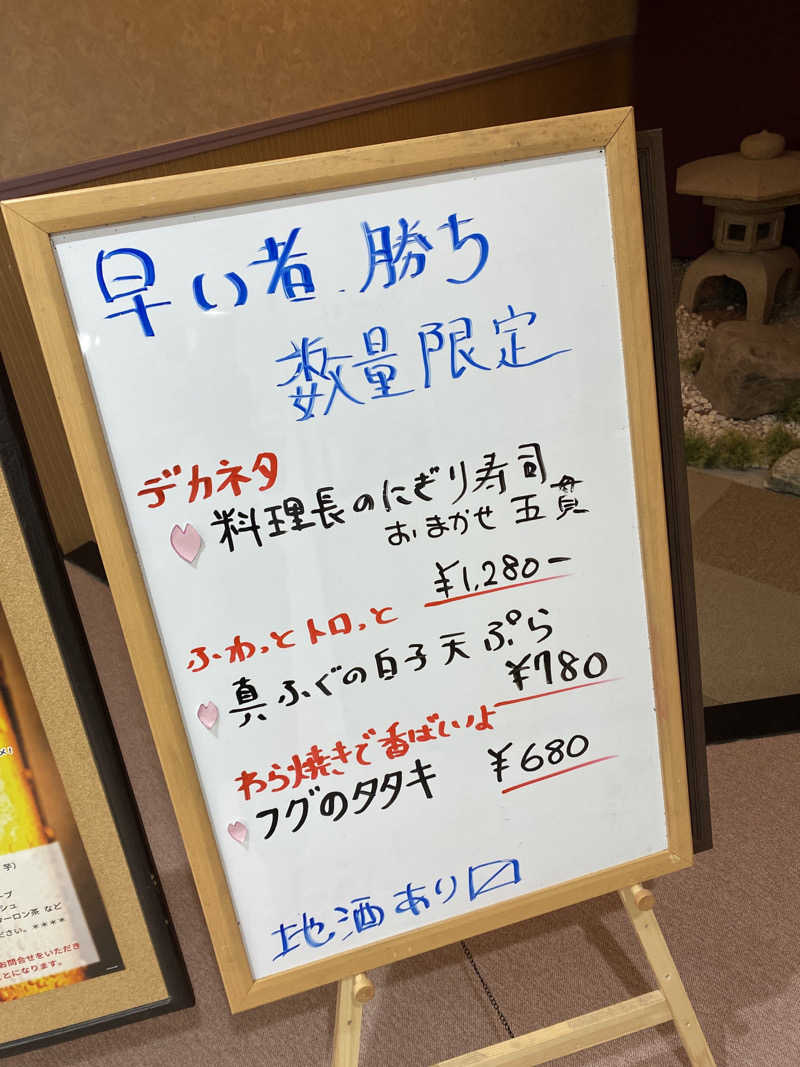 早い者勝ち
数量限定
デカネタ
料理長のにぎり寿司
おまかせ 五貫
¥1,280-
ふわっとトロっと
真ふぐの白子天ぷら
¥780
わら焼きで香ばいよ
フグのタタキ ¥680
地酒あり〼
芋)
ープ
シュ
ーロン茶 など
ださい。****
お問合せをいただき
とになります。